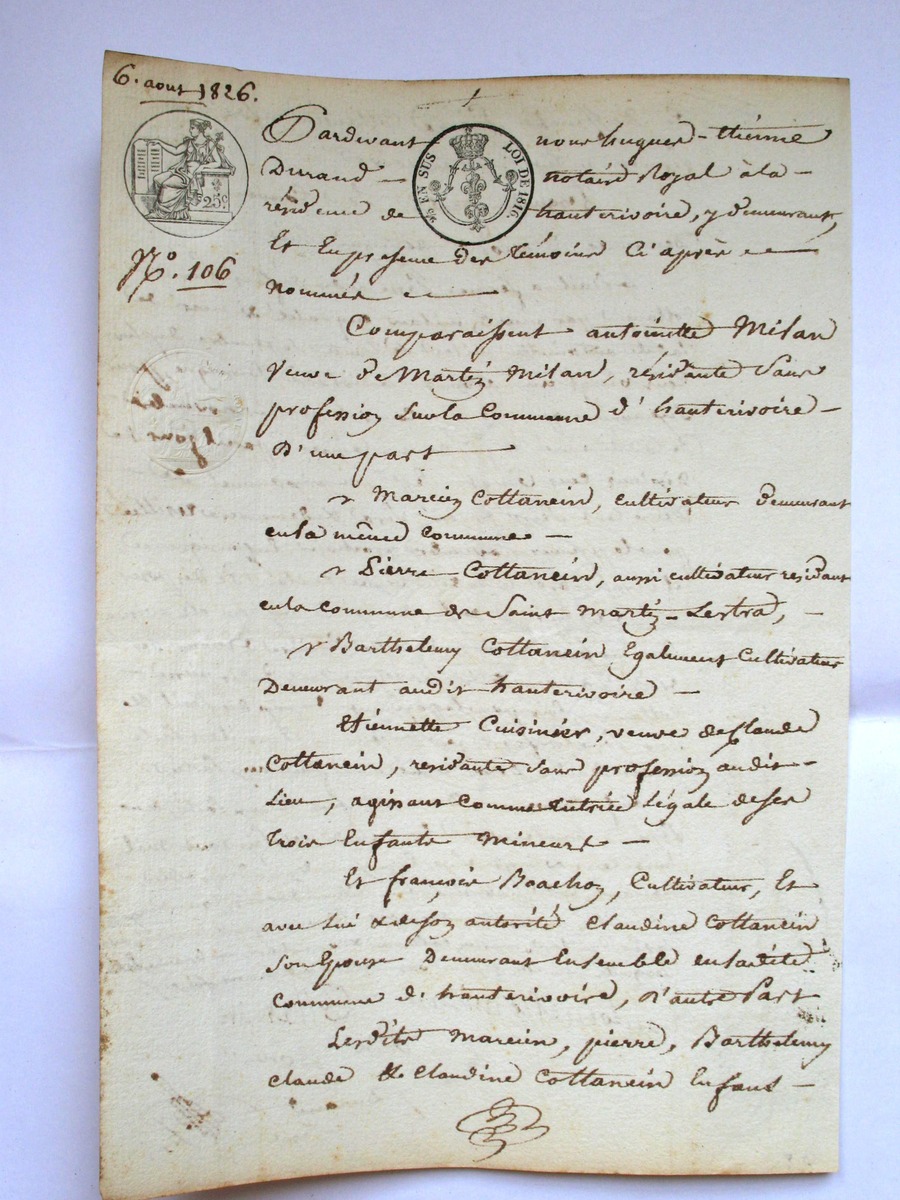 6. aout 1826.
25 c
EN SUS LOI DE 1816
Pardevant nous hugues-thiénne
Durand - notaire Royal à la -
résidence de hauterivoire, y demeurant,
Et En presence des témoins Ci après
nommés
N.o 106
Comparaissent antoinette Milan
Veuve de Martin Milan, résidante Sans
profession Sur la Commune d' hauterivoire -
D'une part
Marcien Cottancin, cultivateur demeurant
en la même Commune -
Pierre Cottancin, aussi cultivateur residant
en la Commune de Saint Martin-Lestra, -
Barthelemy Cottancin Egalement Cultivateur
Demeurant audit hauterivoire -
Etiennette Cuisinier, veuve de Claude
Cottancin, residante Sans profession audit -
Lieu, agissant Comme tutrice Légale de ses
trois Enfants Mineurs -
Et françois Boachon, Cultivateur, Et
avec lui & de son autorité Claudine Cottancin
son Epouse Demeurant Ensemble en ladite
Commune d' hauterivoire, D'autre Part
Lesdits Marcien, pierre, Barthelemy
Claude & Claudine Cottancin Enfans -